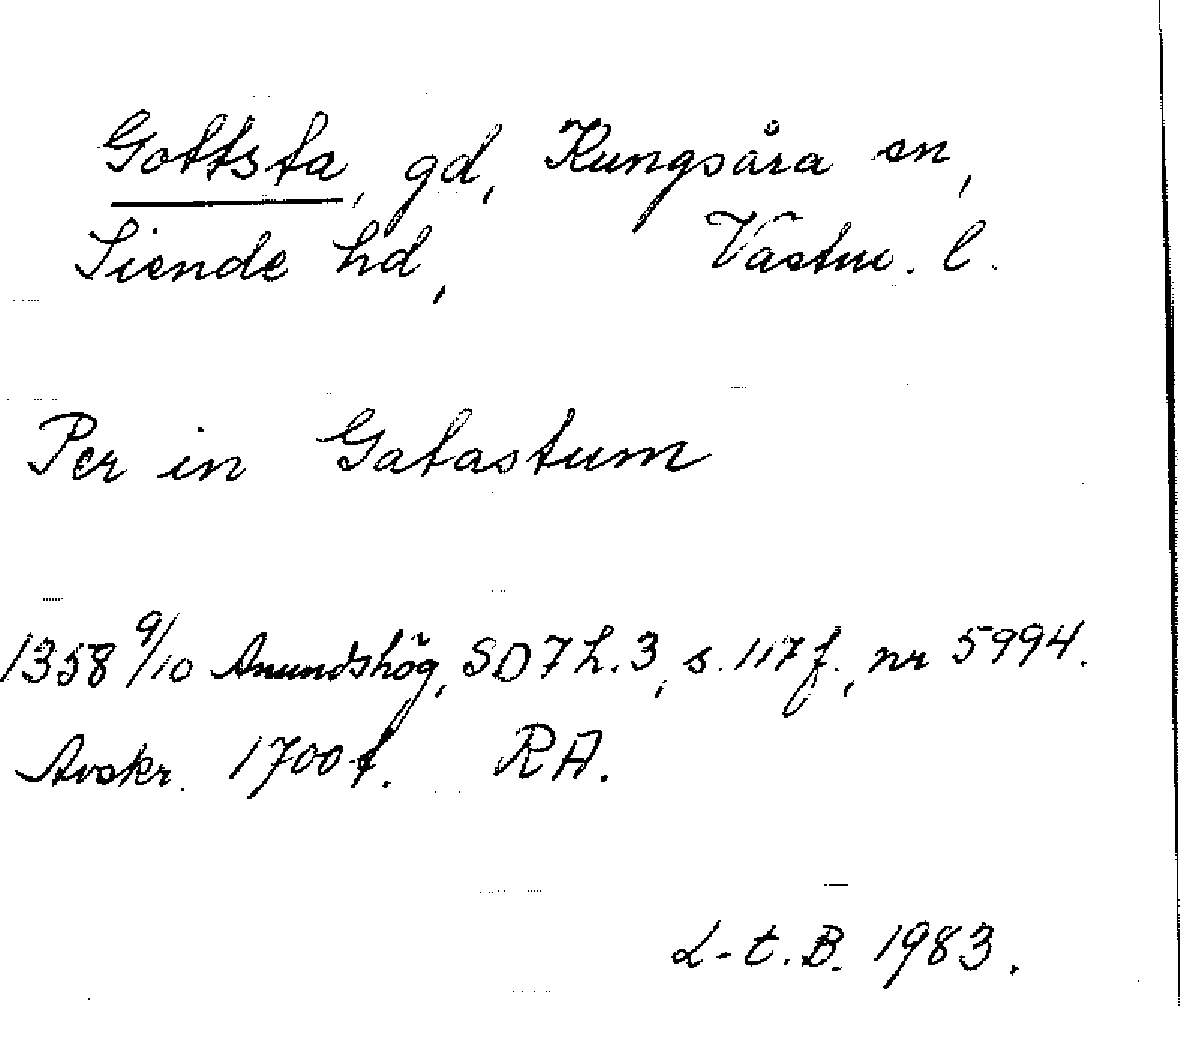 Gottsta, gd, Kungsåra sn,
Siende hd, Västm. l.
Per in Gatastum
1358 9/10 Anundshög, SD 7 h. 3, s. 117 f., nr 5994.
Avskr. 1700t. RA.
L-t.B. 1983.